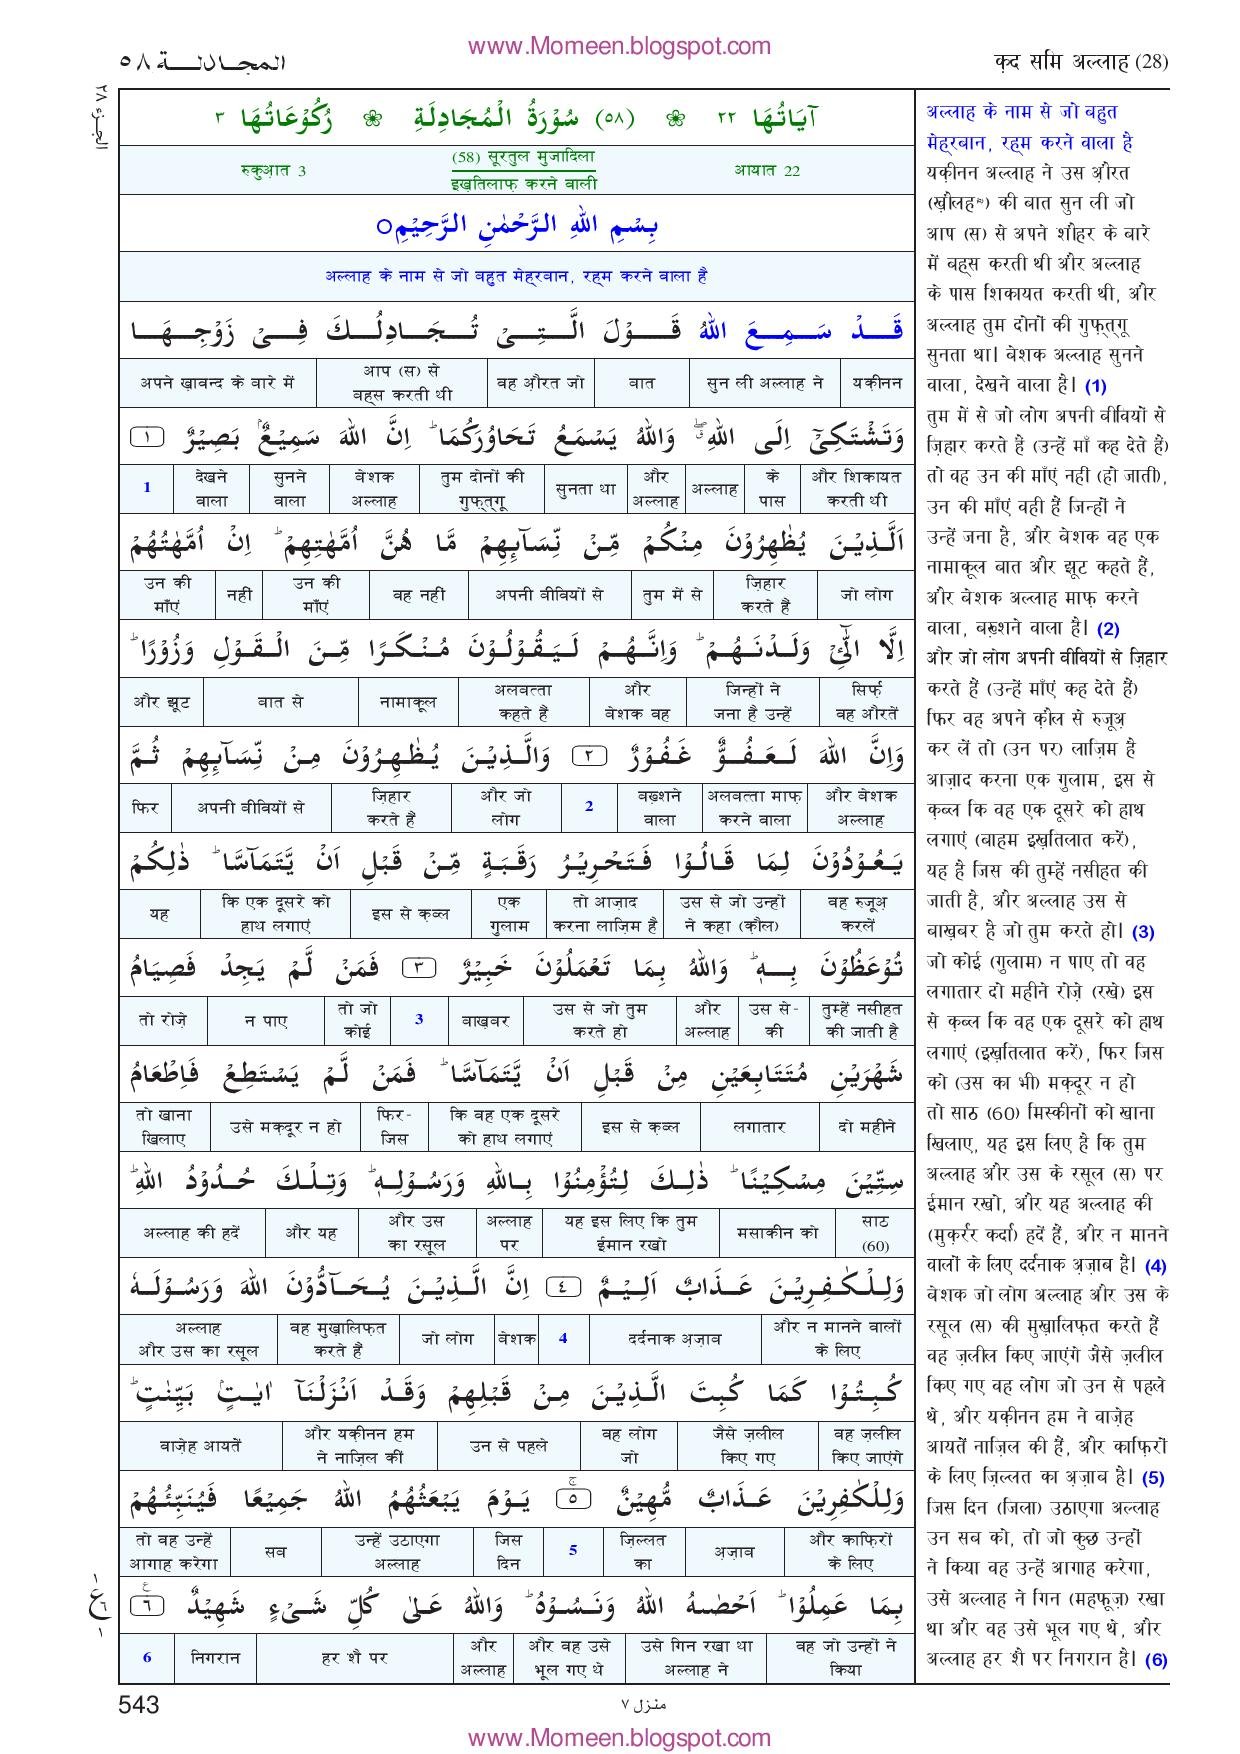 www.Momeen.blogspot.com
المجادلة ٥٨
क़द समि अल्लाह (28)
الجزء ٢٨
آيَاتُهَا ٢٢ ❀ (٥٨) سُوْرَةُ الْمُجَادِلَةِ ❀ رُكُوْعَاتُهَا ٣
आयात 22
(58) सूरतुल मुजादिला
इख़तिलाफ़ करने वाली
रुकुआ़त 3
بِسْمِ اللهِ الرَّحْمٰنِ الرَّحِيْمِ○
अल्लाह के नाम से जो बहुत मेह्रबान, रह्म करने वाला है
قَدْ سَمِعَ اللهُ قَوْلَ الَّتِيْ تُجَادِلُكَ فِيْ زَوْجِهَا
यक़ीनन सुन ली अल्लाह ने बात वह औ़रत जो आप (स) से बह्स करती थी अपने ख़ाबन्द के बारे में
وَتَشْتَكِيْٓ اِلَى اللهِ ۖ وَاللهُ يَسْمَعُ تَحَاوُرَكُمَا ؕ اِنَّ اللهَ سَمِيْعٌۢ بَصِيْرٌ ١
और शिकायत करती थी के पास अल्लाह और अल्लाह सुनता था तुम दोनों की गुफ़्त्गू बेशक अल्लाह सुनने वाला देखने वाला 1
اَلَّذِيْنَ يُظٰهِرُوْنَ مِنْكُمْ مِّنْ نِّسَآئِهِمْ مَّا هُنَّ اُمَّهٰتِهِمْ ؕ اِنْ اُمَّهٰتُهُمْ
जो लोग ज़िहार करते हैं तुम में से अपनी बीवियों से वह नहीं उन की माँएं नहीं उन की माँएं
اِلَّا الّٰٓئِيْ وَلَدْنَهُمْ ؕ وَاِنَّهُمْ لَيَقُوْلُوْنَ مُنْكَرًا مِّنَ الْقَوْلِ وَزُوْرًا ؕ
सिर्फ़ वह औ़रतें जिन्हों ने जना है उन्हें और बेशक वह अलबत्ता कहते हैं नामाकूल बात से और झूट
وَاِنَّ اللهَ لَعَفُوٌّ غَفُوْرٌ ٢ وَالَّذِيْنَ يُظٰهِرُوْنَ مِنْ نِّسَآئِهِمْ ثُمَّ
और बेशक अल्लाह अलबत्ता माफ़ करने वाला बख़्शने वाला 2 और जो लोग ज़िहार करते हैं अपनी बीवियों से फिर
يَعُوْدُوْنَ لِمَا قَالُوْا فَتَحْرِيْرُ رَقَبَةٍ مِّنْ قَبْلِ اَنْ يَّتَمَآسَّا ؕ ذٰلِكُمْ
वह रुजूअ़ करलें उस से जो उन्हों ने कहा (क़ौल) तो आज़ाद करना लाज़िम है एक ग़ुलाम इस से क़ब्ल कि एक दूसरे को हाथ लगाएं यह
تُوْعَظُوْنَ بِهٖ ؕ وَاللهُ بِمَا تَعْمَلُوْنَ خَبِيْرٌ ٣ فَمَنْ لَّمْ يَجِدْ فَصِيَامُ
तुम्हें नसीहत की जाती है उस से- की और अल्लाह उस से जो तुम करते हो बाख़बर 3 तो जो कोई न पाए तो रोज़े
شَهْرَيْنِ مُتَتَابِعَيْنِ مِنْ قَبْلِ اَنْ يَّتَمَآسَّا ؕ فَمَنْ لَّمْ يَسْتَطِعْ فَاِطْعَامُ
दो महीने लगातार इस से क़ब्ल कि वह एक दूसरे को हाथ लगाएं फिर- जिस उसे मक़दूर न हो तो खाना खिलाए
سِتِّيْنَ مِسْكِيْنًا ؕ ذٰلِكَ لِتُؤْمِنُوْا بِاللهِ وَرَسُوْلِهٖ ؕ وَتِلْكَ حُدُوْدُ اللهِ ؕ
साठ (60) मसाकीन को यह इस लिए कि तुम ईमान रखो अल्लाह पर और उस का रसूल और यह अल्लाह की हदें
وَلِلْكٰفِرِيْنَ عَذَابٌ اَلِيْمٌ ٤ اِنَّ الَّذِيْنَ يُحَآدُّوْنَ اللهَ وَرَسُوْلَهٗ
और न मानने वालों के लिए दर्दनाक अ़ज़ाब 4 बेशक जो लोग वह मुख़ालिफ़त करते हैं अल्लाह और उस का रसूल
كُبِتُوْا كَمَا كُبِتَ الَّذِيْنَ مِنْ قَبْلِهِمْ وَقَدْ اَنْزَلْنَآ اٰيٰتٍۢ بَيِّنٰتٍ ؕ
वह ज़लील किए जाएंगे जैसे ज़लील किए गए वह लोग जो उन से पहले और यक़ीनन हम ने नाज़िल कीं वाज़ेह आयतें
وَلِلْكٰفِرِيْنَ عَذَابٌ مُّهِيْنٌ ٥ يَوْمَ يَبْعَثُهُمُ اللهُ جَمِيْعًا فَيُنَبِّئُهُمْ
और काफ़िरों के लिए अ़ज़ाब ज़िल्लत का 5 जिस दिन उन्हें उठाएगा अल्लाह सब तो वह उन्हें आगाह करेगा
بِمَا عَمِلُوْا ؕ اَحْصٰىهُ اللهُ وَنَسُوْهُ ؕ وَاللهُ عَلٰى كُلِّ شَيْءٍ شَهِيْدٌ ٦
वह जो उन्हों ने किया उसे गिन रखा था अल्लाह ने और वह उसे भूल गए थे और अल्लाह हर शै पर निगरान 6
अल्लाह के नाम से जो बहुत
मेह्रबान, रह्म करने वाला है
यक़ीनन अल्लाह ने उस औ़रत
(ख़ौलह) की बात सुन ली जो
आप (स) से अपने शौहर के बारे
में बह्स करती थी और अल्लाह
के पास शिकायत करती थी, और
अल्लाह तुम दोनों की गुफ़्त्गू
सुनता था। बेशक अल्लाह सुनने
वाला, देखने वाला है। (1)
तुम में से जो लोग अपनी बीवियों से
ज़िहार करते हैं (उन्हें माँ कह देते हैं)
तो वह उन की माँएं नहीं (हो जाती),
उन की माँएं वही हैं जिन्हों ने
उन्हें जना है, और बेशक वह एक
नामाकूल बात और झूट कहते हैं,
और बेशक अल्लाह माफ़ करने
वाला, बख़्शने वाला है। (2)
और जो लोग अपनी बीवियों से ज़िहार
करते हैं (उन्हें माँएं कह देते हैं)
फिर वह अपने क़ौल से रुजूअ़
कर लें तो (उन पर) लाज़िम है
आज़ाद करना एक ग़ुलाम, इस से
क़ब्ल कि वह एक दूसरे को हाथ
लगाएं (बाहम इख़तिलात करें),
यह है जिस की तुम्हें नसीहत की
जाती है, और अल्लाह उस से
बाख़बर है जो तुम करते हो। (3)
जो कोई (ग़ुलाम) न पाए तो वह
लगातार दो महीने रोज़े (रखे) इस
से क़ब्ल कि वह एक दूसरे को हाथ
लगाएं (इख़तिलात करें), फिर जिस
को (उस का भी) मक़दूर न हो
तो साठ (60) मिस्कीनों को खाना
खिलाए, यह इस लिए है कि तुम
अल्लाह और उस के रसूल (स) पर
ईमान रखो, और यह अल्लाह की
(मुक़र्रर कर्दा) हदें हैं, और न मानने
वालों के लिए दर्दनाक अ़ज़ाब है। (4)
बेशक जो लोग अल्लाह और उस के
रसूल (स) की मुख़ालिफ़त करते हैं
वह ज़लील किए जाएंगे जैसे ज़लील
किए गए वह लोग जो उन से पहले
थे, और यक़ीनन हम ने वाज़ेह
आयतें नाज़िल की हैं, और काफ़िरों
के लिए ज़िल्लत का अ़ज़ाब है। (5)
जिस दिन (जिला) उठाएगा अल्लाह
उन सब को, तो जो कुछ उन्हों
ने किया वह उन्हें आगाह करेगा,
उसे अल्लाह ने गिन (महफ़ूज़) रखा
था और वह उसे भूल गए थे, और
अल्लाह हर शै पर निगरान है। (6)
543
منزل ٧
www.Momeen.blogspot.com